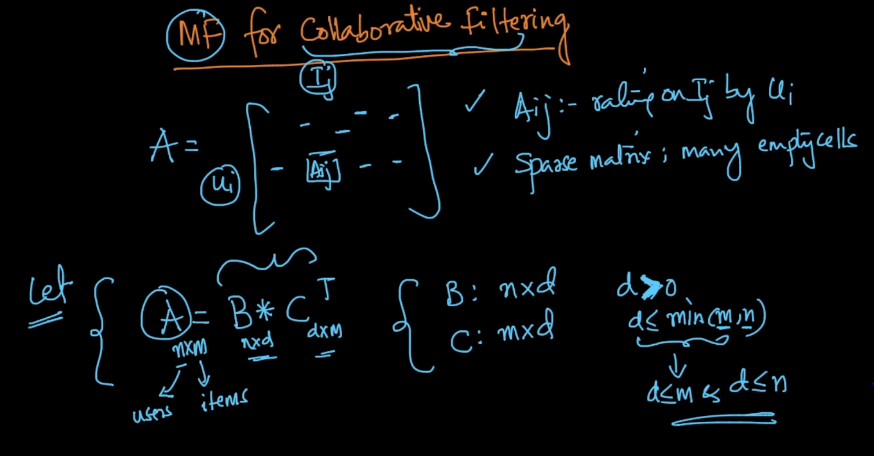 MF for Collaborative Filtering
Ij
A =
Aij
Ui
✓ Aij :- rating on Ij by Ui
✓ Sparse matrix ; many empty cells
Let
A = B * C^T
n×m
n×d
d×m
users
items
B : n×d
C : m×d
d > 0
d ≤ min(m,n)
d ≤ m & d ≤ n